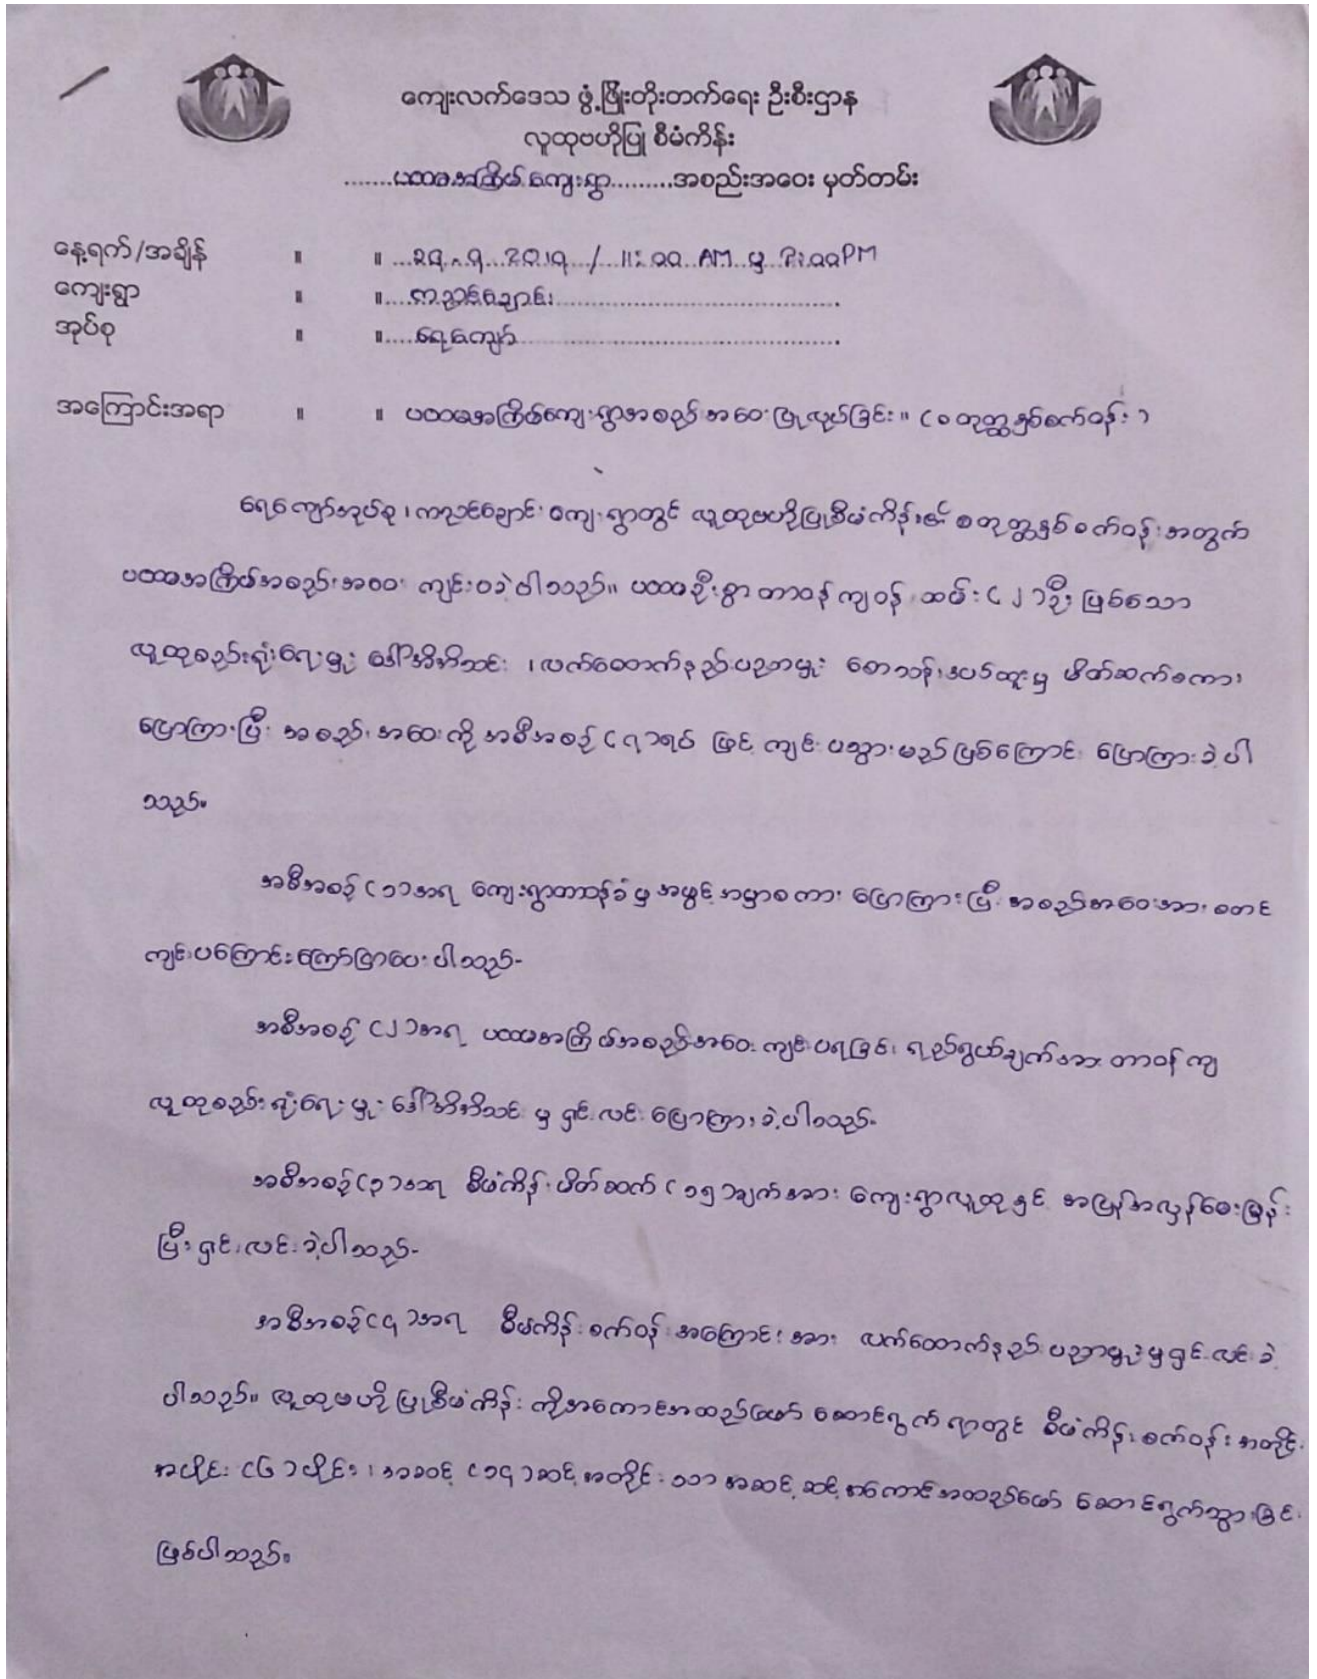 ကျေးလက်ဒေသ ဖွံ့ဖြိုးတိုးတက်ရေး ဦးစီးဌာန
လူထုဗဟိုပြု စီမံကိန်း
.......ပထမအကြိမ် ကျေးရွာ.........အစည်းအဝေး မှတ်တမ်း
နေ့ရက်/အချိန် ။ ။ 2019 / 11:00 AM မှ PM
ကျေးရွာ ။ ။....ကညင်ချောင်း......
အုပ်စု ။ ။.....ရေကျော်......
အကြောင်းအရာ ။ ။ ပထမအကြိမ်ကျေးရွာအစည်းအဝေးပြုလုပ်ခြင်း။ (စတုတ္ထနှစ်စက်ဝန်း)
ရေကျော်အုပ်စု ၊ ကညင်ချောင်း ကျေးရွာတွင် လူထုဗဟိုပြုစီမံကိန်း၏ စတုတ္ထနှစ်စက်ဝန်း အတွက်
ပထမအကြိမ်အစည်းအဝေး ကျင်းပခဲ့ပါသည်။ ပထမဦးစွာ တာဝန်ကျဝန်ထမ်း (၂)ဦး ဖြစ်သော
လူထုစည်းရုံးရေးမှူး ဒေါ်အိအိသင်း ၊ လက်ထောက်နည်းပညာမှူး မှ မိတ်ဆက်စကား
ပြောကြားပြီး အစည်းအဝေးကို အစီအစဉ် (၇)ရပ် ဖြင့် ကျင်းပသွားမည်ဖြစ်ကြောင်း ပြောကြားခဲ့ပါ
သည်။
အစီအစဉ် (၁)အရ ကျေးရွာတာဝန်ခံမှ အဖွင့်အမှာစကား ပြောကြားပြီး အစည်းအဝေးအား စတင်
ကျင်းပကြောင်း ကြေငြာပေးပါသည်-
အစီအစဉ် (၂)အရ ပထမအကြိမ်အစည်းအဝေး ကျင်းပရခြင်း ရည်ရွယ်ချက်အား တာဝန်ကျ
လူထုစည်းရုံးရေးမှူး ဒေါ်အိအိသင်း မှ ရှင်းလင်းပြောကြားခဲ့ပါသည်-
အစီအစဉ်(၃)အရ စီမံကိန်းမိတ်ဆက် (၁၅)ချက်အား ကျေးရွာလူထုနှင့် အပြန်အလှန်မေးမြန်း
ပြီး ရှင်းလင်းခဲ့ပါသည်-
အစီအစဉ်(၄)အရ စီမံကိန်းစက်ဝန်းအကြောင်းအား လက်ထောက်နည်းပညာမှူးမှ ရှင်းလင်းခဲ့
ပါသည်။ လူထုဗဟိုပြုစီမံကိန်းကို အကောင်အထည်ဖော် ဆောင်ရွက်ရာတွင် စီမံကိန်းစက်ဝန်းအတိုင်း
အပိုင်း (၆)ပိုင်း ၊ အဆင့် (၁၄)ဆင့်အတိုင်းသာ အဆင့်ဆင့်အကောင်အထည်ဖော် ဆောင်ရွက်သွားခြင်း
ဖြစ်ပါသည်။